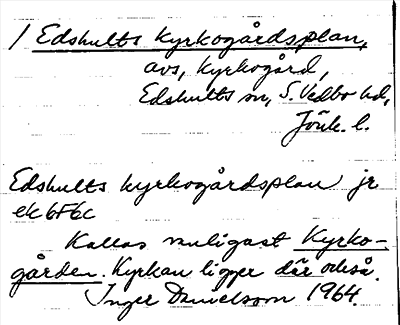 / Edshults Kyrkogårdsplan,
avs, kyrkogård,
Edshults sn, S. Vedbo hd,
Jönk. l.
Edshults kyrkogårdsplan jr
ek 6F6c
Kallas muligast Kyrko-
gården. Kyrkan ligger där också.
Inger Danielsson 1964